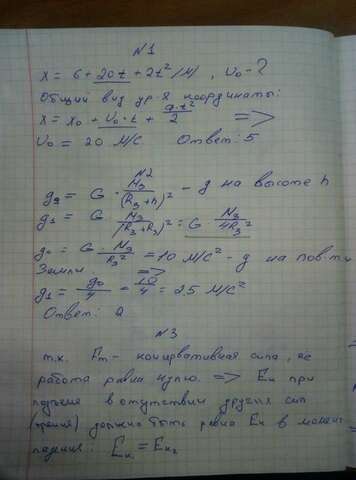 N1
x = 6 + 20t + 2t² /м/, υ₀ - ?
Общий вид ур-я координаты:
x = x₀ + υ₀·t + at²/2 =>
υ₀ = 20 м/с Ответ: 5
N2
g₂ = G · M₃/(R₃+h)² - g на высоте h
g₁ = G M₃/(R₃+R₃)² = G M₃/4R₃²
g₀ = G M₃/R₃² = 10 м/с² - g на пов-ти
Земли =>
g₁ = g₀/4 = 10/4 = 2,5 м/с²
Ответ: 2
N3
т.к. Fт - консервативная сила, ее
работа равна нулю. => Eк при
подъеме в отсутствии других сил
(трения) должно быть равна Eк в момент
падения: Eк₁ = Eк₂